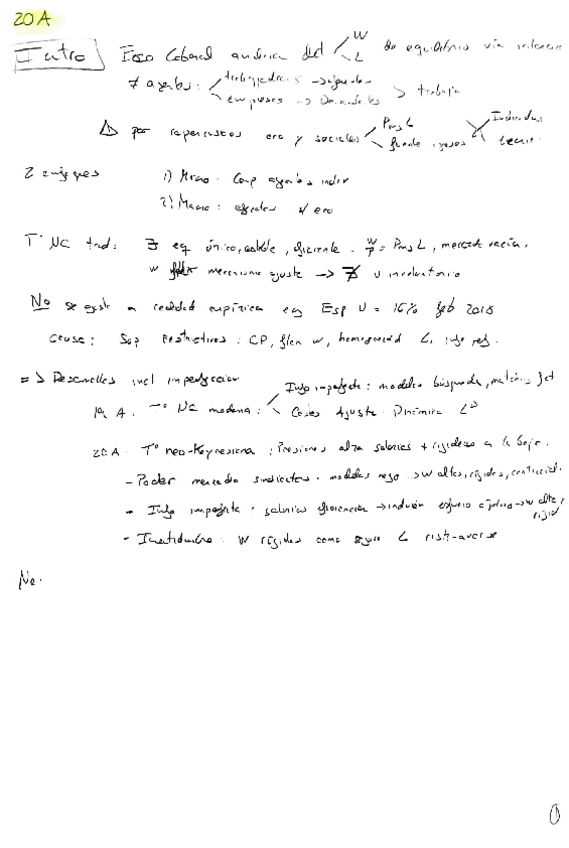 20A
Intro Eco Laboral analiza det W L de equilibrio vía interacc
≠ agentes: trabajadores → oferentes empresas → demandantes > trabajo
⚠ por repercusiones eco y sociales PmgL fuente ingresos Individual
2 enfoques 1) Micro: Comp agentes indiv
2) Macro: efectos s/ eco
Tª NC trad: ∃ eq único, estable, eficiente. W/P = PmgL, mercado vacía.
w flex mecanismo ajuste → ∄ U involuntario
No se ajusta a realidad empírica eg Esp U = 16% feb 2018
causa: Sup restrictivos: CP, flex w, homogeneidad L, info perf.
=> Desarrollos incl imperfección
19 A. Tª NC moderna: Info imperfecta: modelos búsqueda, matching, Costes Ajuste. Dinámica L^D
20A. Tª neo-Keynesiana: Presiones alza salarios + rigideces a la baja.
- Poder mercado sindicatos. modelos nego → W altos, rígidos,
- Info imperfecta. salarios eficiencia → inducen esfuerzo óptimo → w altos y rígid
- Incertidumbre. W rígidos como seguro L risk-averse
①